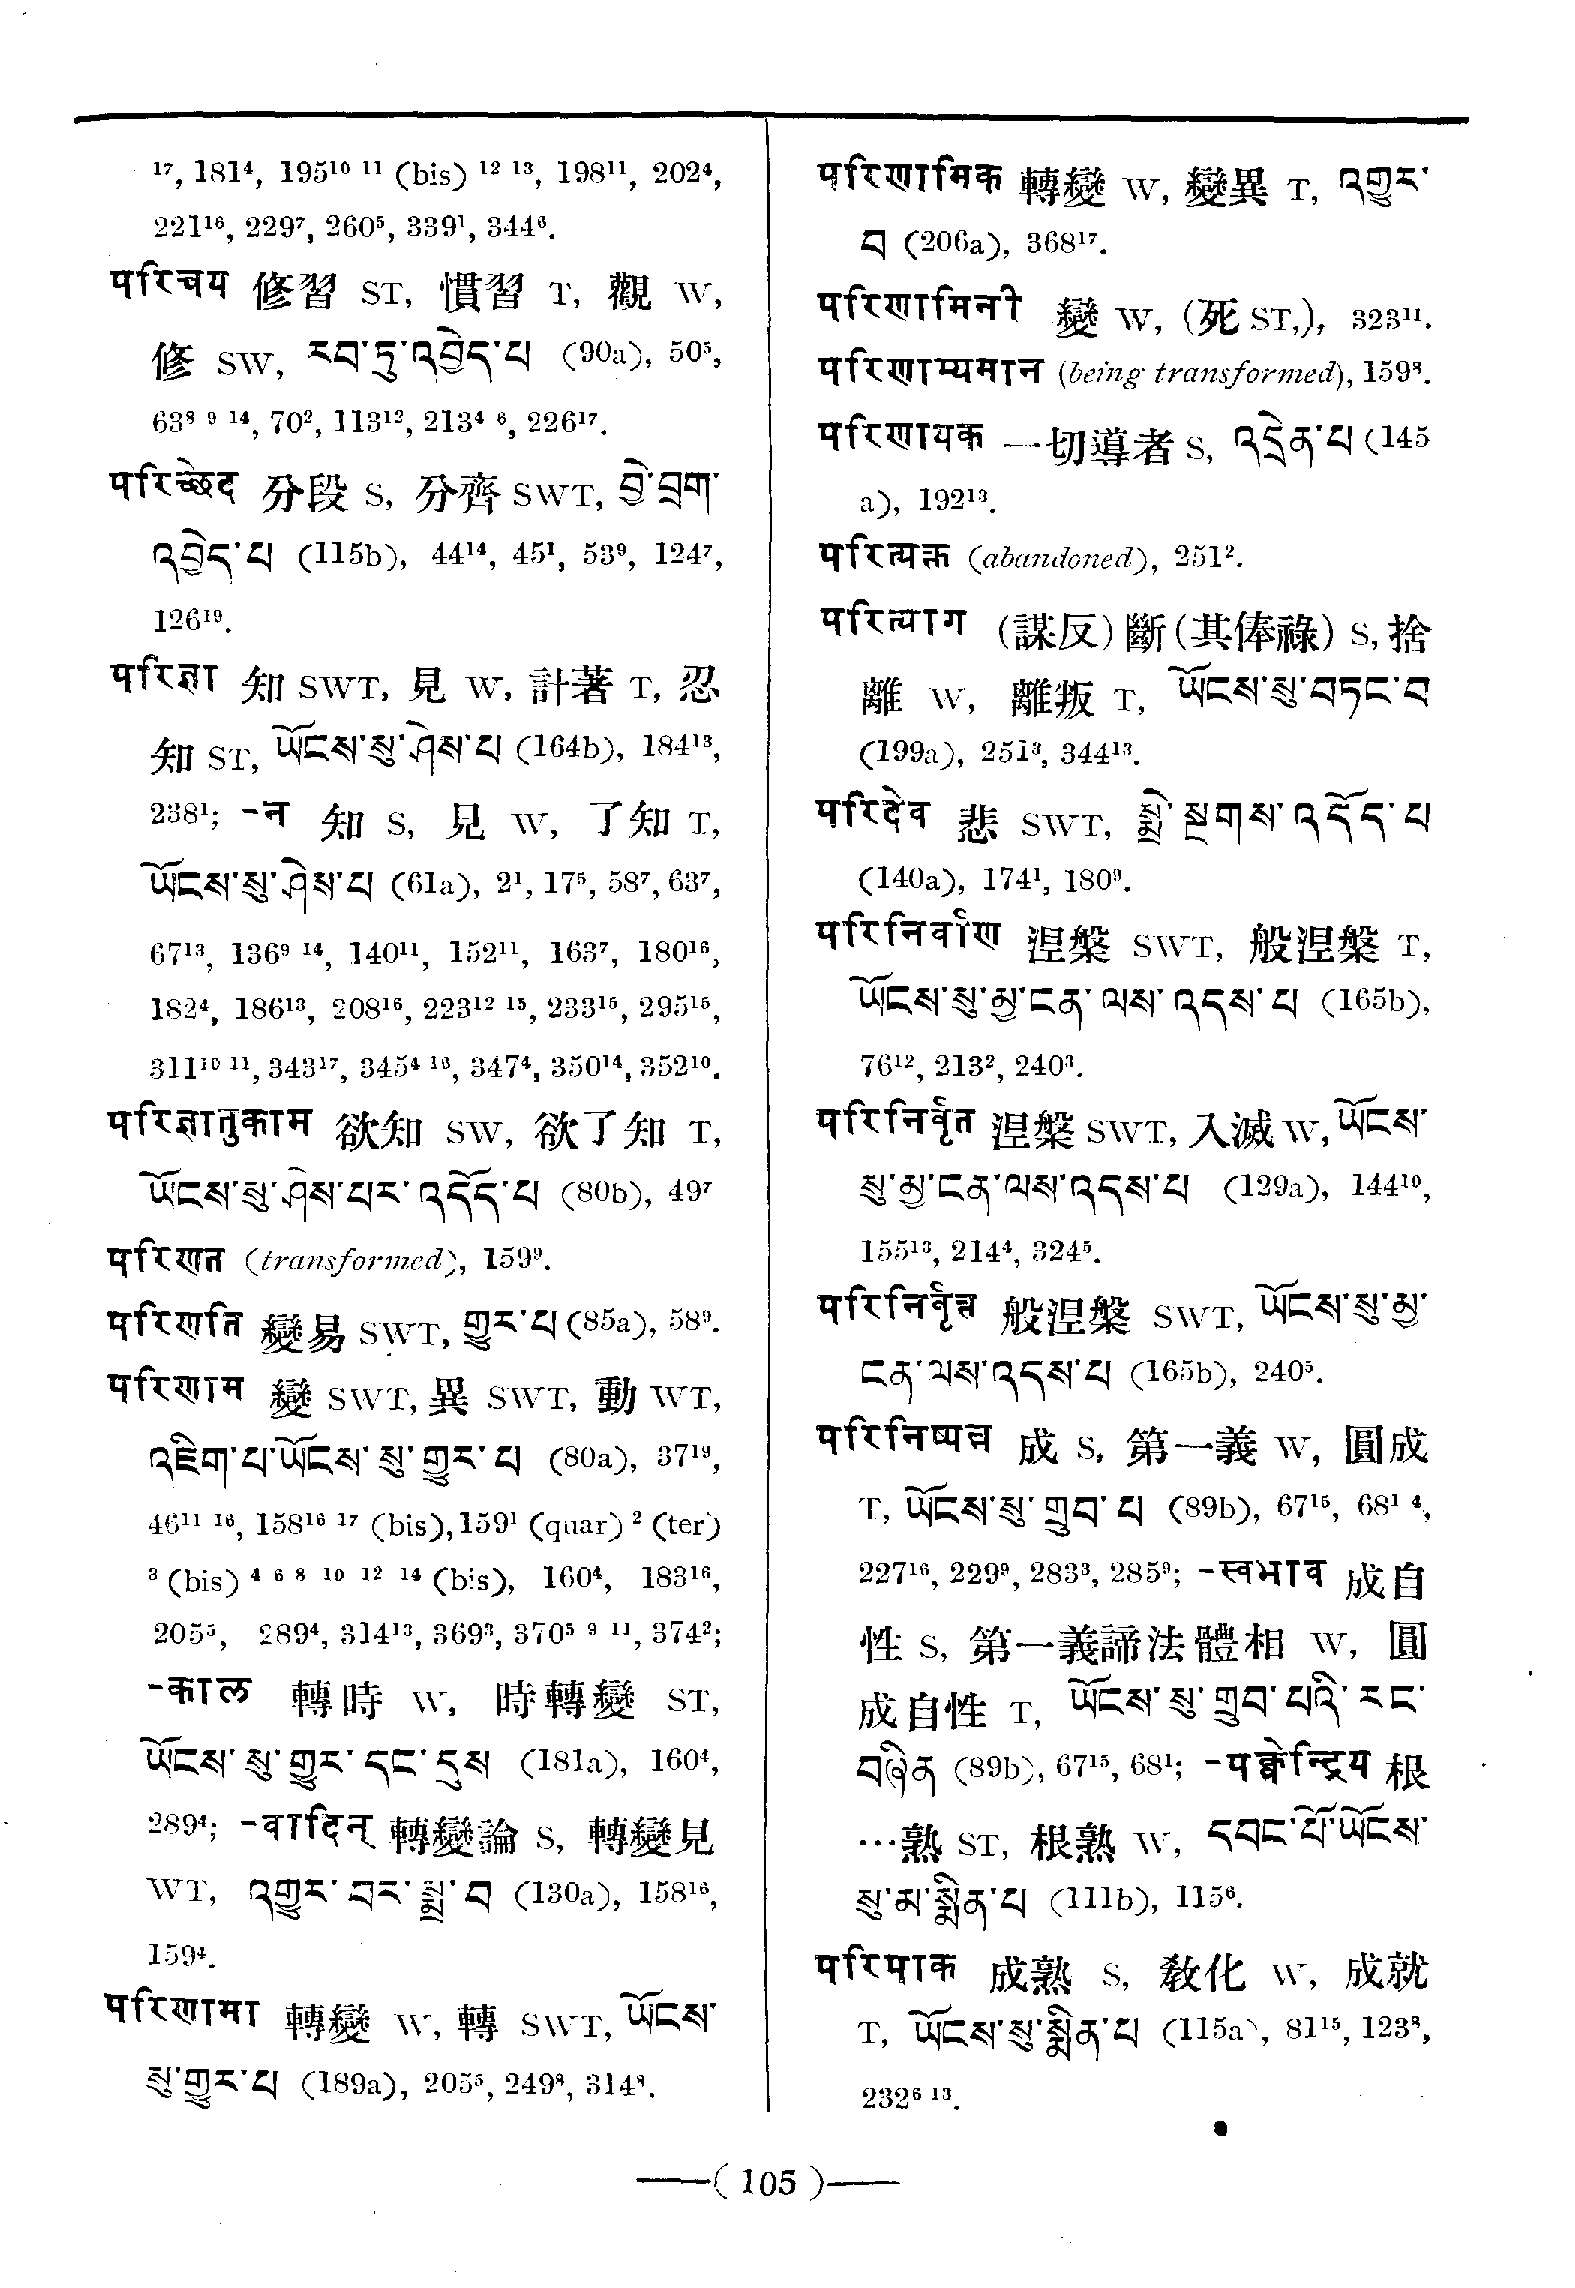 ¹⁷, 181⁴, 195¹⁰ ¹¹ (bis) ¹² ¹³, 198¹¹, 202⁴,
221¹⁶, 229⁷, 260⁵, 339¹, 344⁶.
परिचय 修習 ST, 慣習 T, 觀 W,
修 SW, རབ་ཏུ་འབྱེད་པ (90a), 50⁵,
63⁸ ⁹ ¹⁴, 70², 113¹², 213⁴ ⁶, 226¹⁷.
परिच्छेद 分段 S, 分齊 SWT, བྱེ་བྲག་
འབྱེད་པ (115b), 44¹⁴, 45¹, 53⁹, 124⁷,
126¹⁹.
परिज्ञा 知 SWT, 見 W, 計著 T, 忍
知 ST, ཡོངས་སུ་ཤེས་པ (164b), 184¹³,
238¹; -न 知 S, 見 W, 了知 T,
ཡོངས་སུ་ཤེས་པ (61a), 2¹, 17⁵, 58⁷, 63⁷,
67¹³, 136⁹ ¹⁴, 140¹¹, 152¹¹, 163⁷, 180¹⁶,
182⁴, 186¹³, 208¹⁶, 223¹² ¹⁵, 233¹⁵, 295¹⁵,
311¹⁰ ¹¹, 343¹⁷, 345⁴ ¹⁶, 347⁴, 350¹⁴, 352¹⁰.
परिज्ञातुकाम 欲知 SW, 欲了知 T,
ཡོངས་སུ་ཤེས་པར་འདོད་པ (80b), 49⁷
परिणत (transformed), 159⁹.
परिणति 變易 SWT, གྱུར་པ (85a), 58⁹.
परिणाम 變 SWT, 異 SWT, 動 WT,
འཇིག་པ་ཡོངས་སུ་གྱུར་པ (80a), 37¹⁹,
46¹¹ ¹⁶, 158¹⁶ ¹⁷ (bis), 159¹ (quar) ² (ter)
³ (bis) ⁴ ⁶ ⁸ ¹⁰ ¹² ¹⁴ (bis), 160⁴, 183¹⁶,
205⁵, 289⁴, 314¹³, 369³, 370⁵ ⁹ ¹¹, 374²;
-काल 轉時 W, 時轉變 ST,
ཡོངས་སུ་གྱུར་དང་དུས (181a), 160⁴,
289⁴; -वादिन् 轉變論 S, 轉變見
WT, འགྱུར་བར་སྨྲ་བ (130a), 158¹⁶,
159⁴.
परिणामा 轉變 W, 轉 SWT, ཡོངས་
སུ་གྱུར་པ (189a), 205⁵, 249⁸, 314⁸.
परिणामिक 轉變 W, 變異 T, འགྱུར་
བ (206a), 368¹⁷.
परिणामिनी 變 W, (死 ST,), 323¹¹.
परिणाम्यमान (being transformed), 159⁸.
परिणायक 一切導者 S, འདྲེན་པ (145
a), 192¹³.
परित्यक्त (abandoned), 251².
परित्याग (謀反) 斷 (其俸祿) S, 捨
離 W, 離叛 T, ཡོངས་སུ་བཏང་བ
(199a), 251³, 344¹³.
परिदेव 悲 SWT, སྨྲེ་སྔགས་འདོད་པ
(140a), 174¹, 180⁹.
परिनिर्वाण 涅槃 SWT, 般涅槃 T,
ཡོངས་སུ་མྱ་ངན་ལས་འདས་པ (165b),
76¹², 213², 240³.
परिनिर्वृत 涅槃 SWT, 入滅 W, ཡོངས་
སུ་མྱ་ངན་ལས་འདས་པ (129a), 144¹⁰,
155¹³, 214⁴, 324⁵.
परिनिर्वृत्त 般涅槃 SWT, ཡོངས་སུ་མྱ་
ངན་ལས་འདས་པ (165b), 240⁵.
परिनिष्पन्न 成 S, 第一義 W, 圓成
T, ཡོངས་སུ་གྲུབ་པ (89b), 67¹⁵, 68¹ ⁴,
227¹⁶, 229⁹, 283³, 285⁹; -स्वभाव 成自
性 S, 第一義諦法體相 W, 圓
成自性 T, ཡོངས་སུ་གྲུབ་པའི་རང་
བཞིན (89b), 67¹⁵, 68¹; -पक्वेन्द्रिय 根
…熟 ST, 根熟 W, དབང་པོ་ཡོངས་
སུ་མ་སྨིན་པ (111b), 115⁶.
परिपाक 成熟 S, 敎化 W, 成就
T, ཡོངས་སུ་སྨིན་པ (115a), 81¹⁵, 123⁸,
232⁶ ¹³.
—( 105 )—